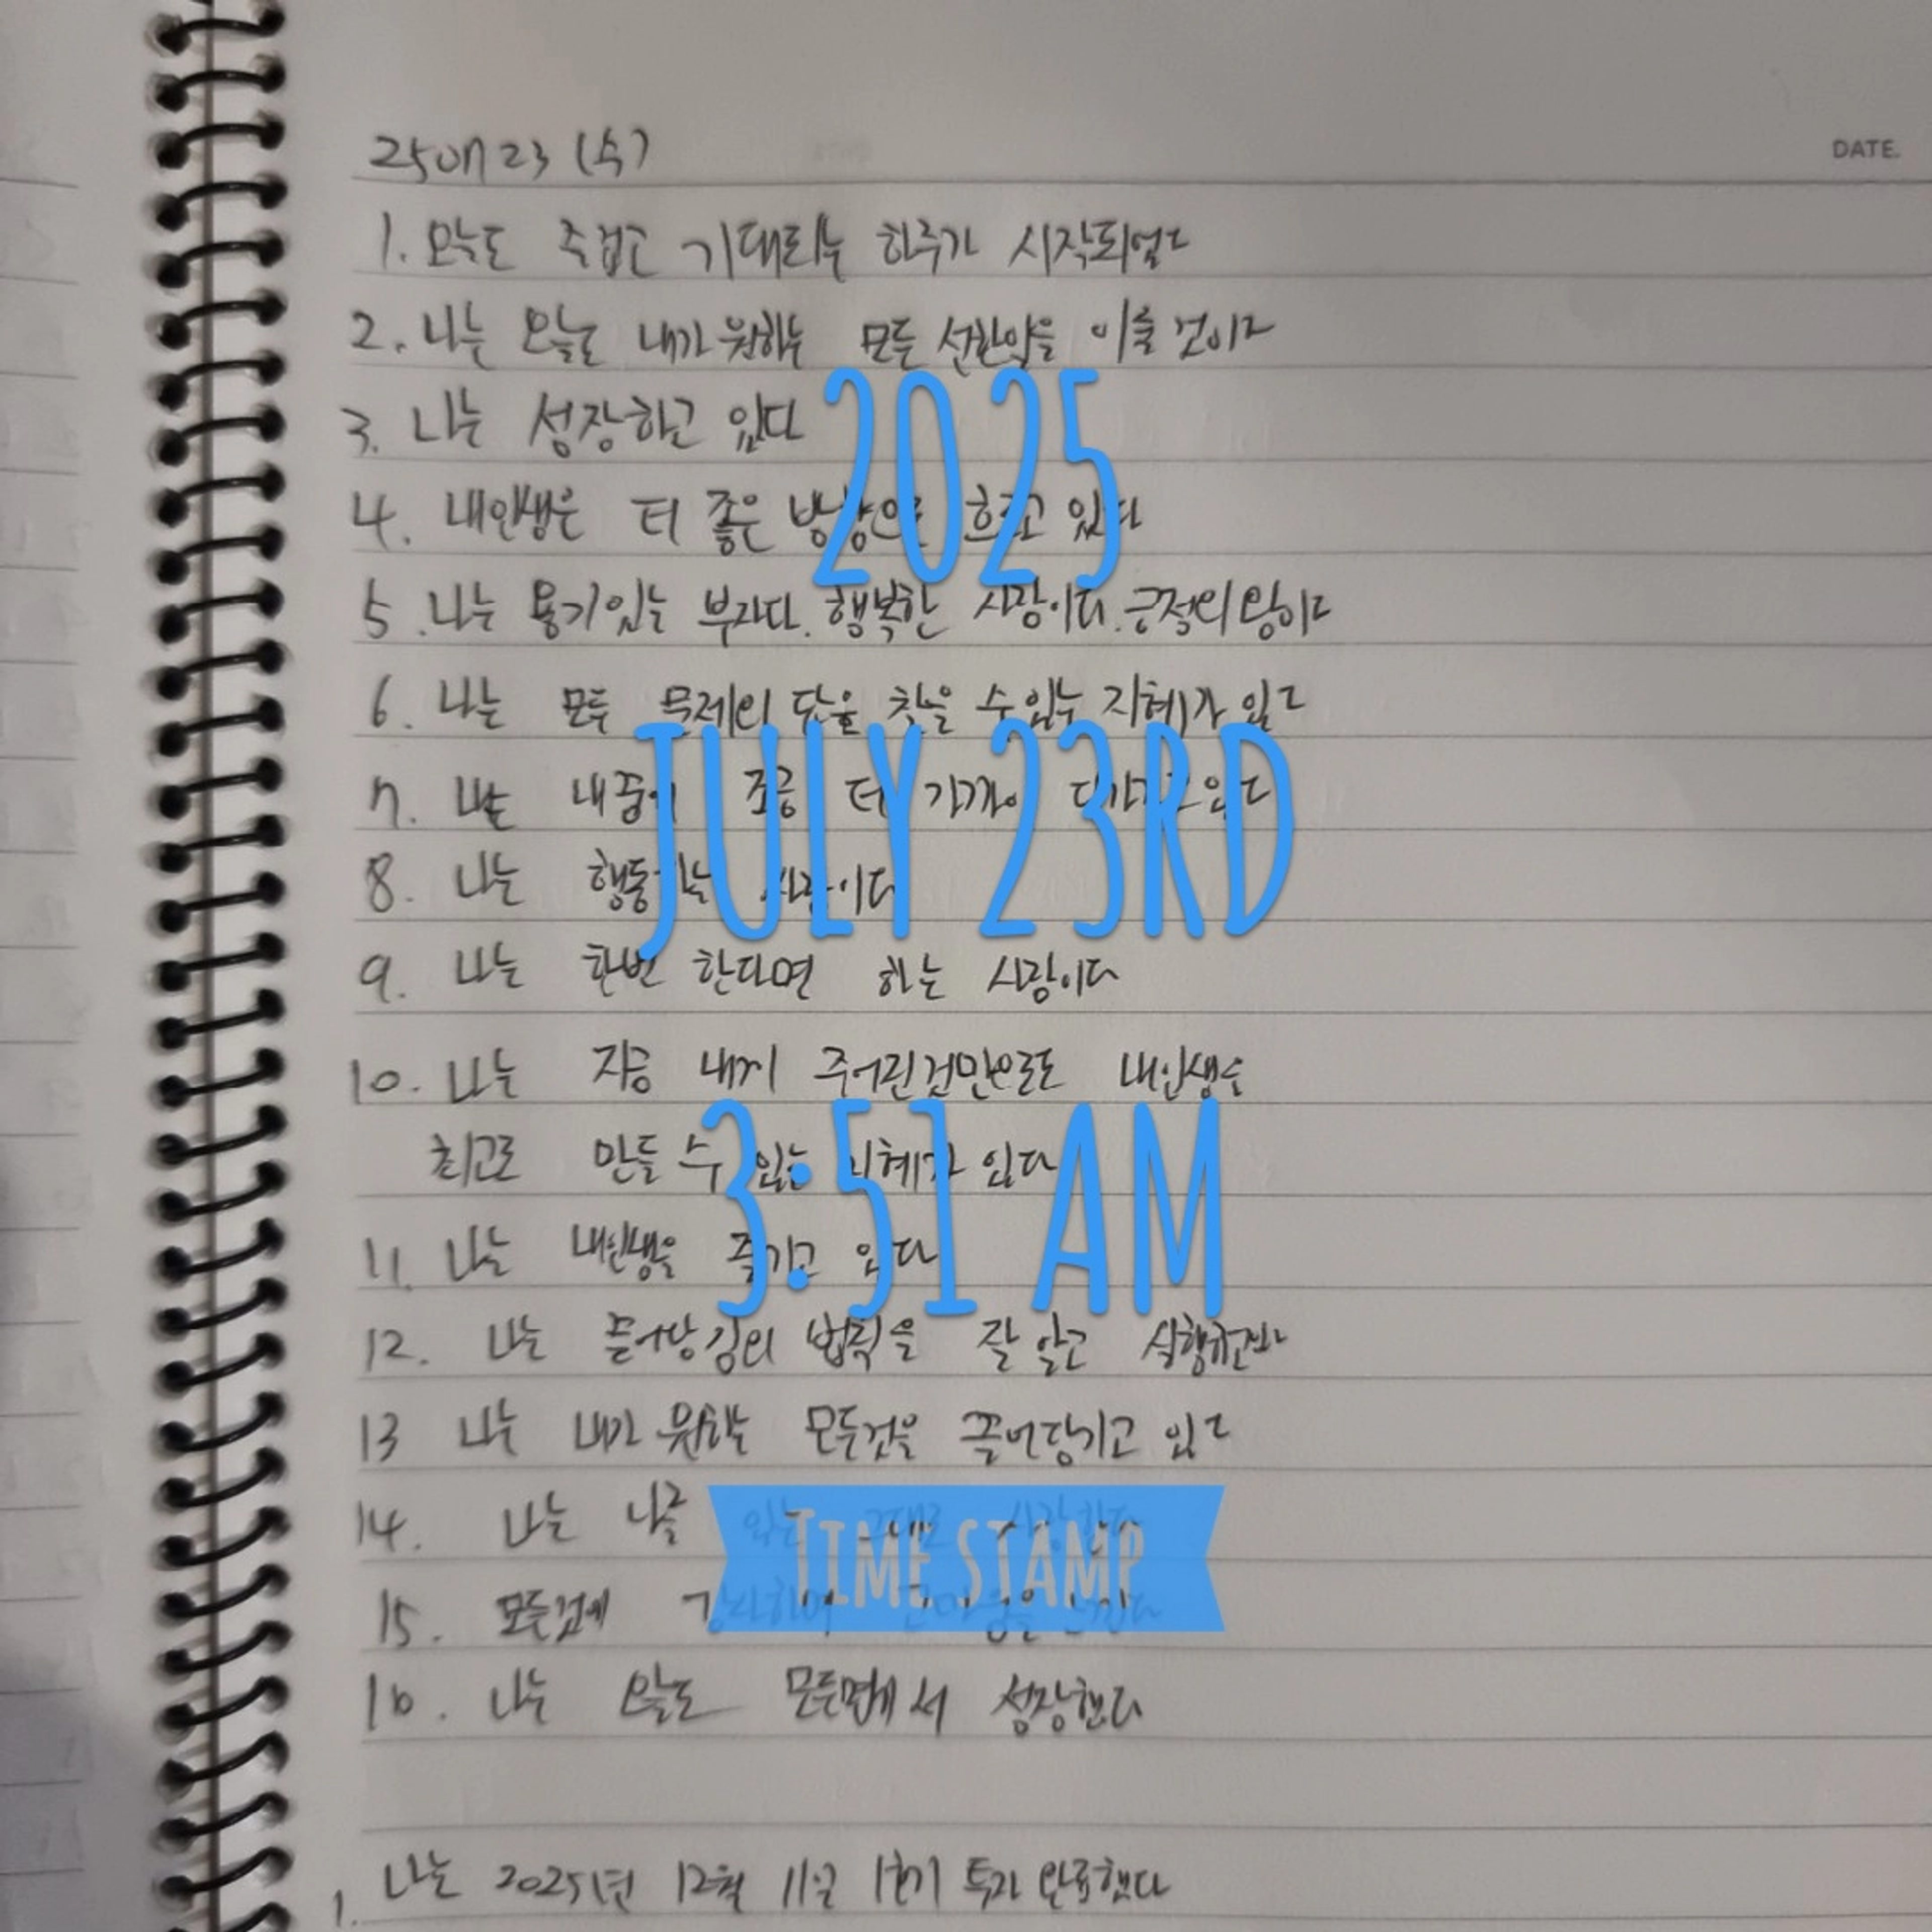 250723 (수)
DATE.
1. 오늘도 즐겁고 기대되는 하루가 시작되었다
2. 나는 오늘도 내가 원하는 모든 선한일을 이룰 것이다
3. 나는 성장하고 있다
2025
4. 내인생은 더 좋은 방향으로 흐르고 있다
5. 나는 용기있는 부자다. 행복한 사람이다. 긍정의 왕이다
6. 나는 모든 문제의 답을 찾을 수 있는 지혜가 있다
JULY 23RD
7. 나는 내꿈에 조금 더 가까이 다가가고 있다
8. 나는 행동하는 사람이다
9. 나는 한번 한다면 하는 사람이다
10. 나는 지금 내게 주어진것만으로도 내인생을
3:51 AM
최고로 만들 수 있는 지혜가 있다
11. 나는 내인생을 즐기고 있다
12. 나는 끌어당김의 법칙을 잘 알고 실행한다
13 나는 내가 원하는 모든것을 끌어당기고 있다
14. 나는 나를 있는 그대로 사랑한다
TIME STAMP
15. 모든것에 감사하며 고마움을 느낀다
16. 나는 오늘도 모든면에서 성장했다
1. 나는 2025년 12월 11일 1호기 투자 완료했다